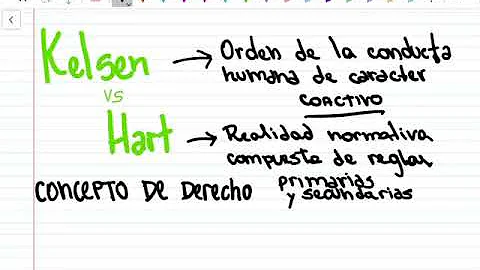 Kelsen → Orden de la conducta
humana de caracter
COACTIVO
vs
Hart → Realidad normativa
compuesta de reglas
primarias
y secundarias
CONCEPTO DE Derecho